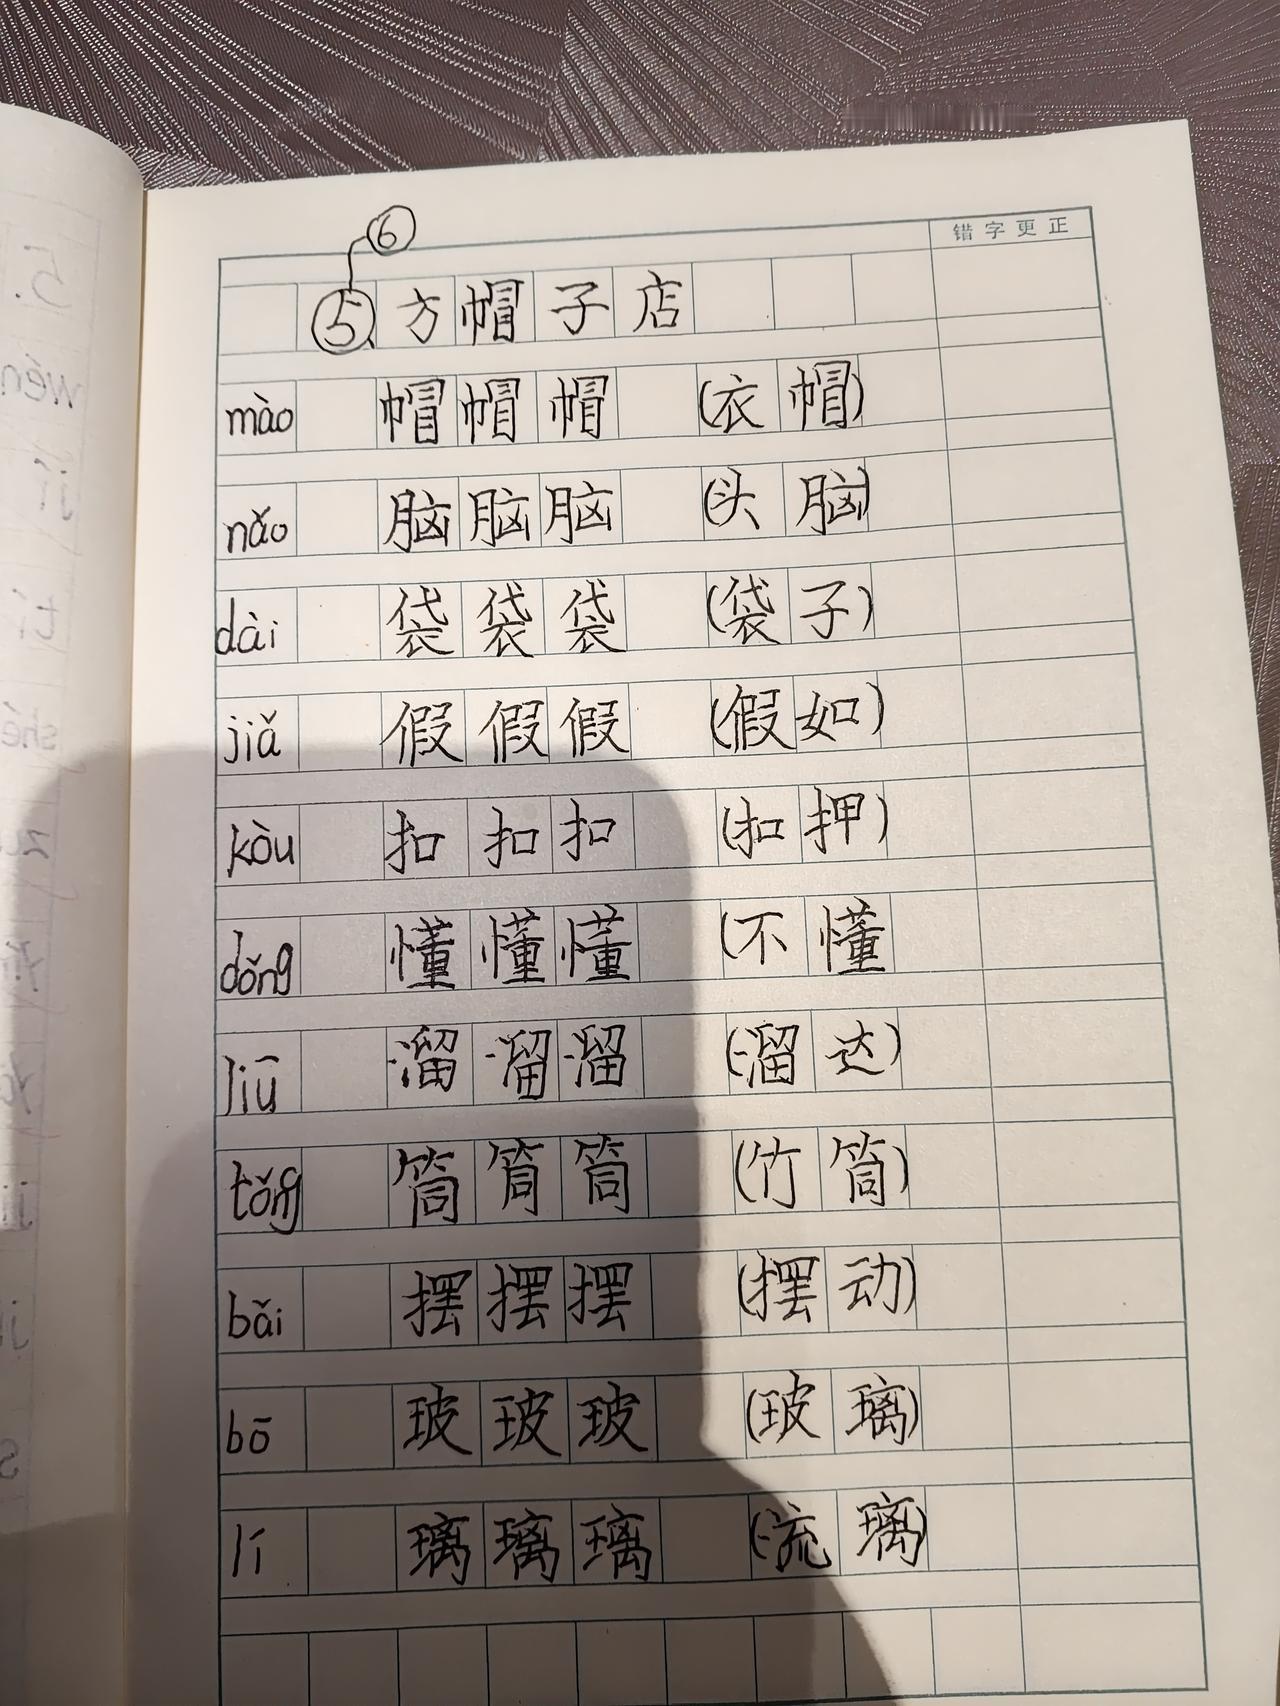 ⑥
错字更正
⑤、方帽子店
mào 帽帽帽 (衣帽)
nǎo 脑脑脑 (头脑)
dài 袋袋袋 (袋子)
jiǎ 假假假 (假如)
kòu 扣扣扣 (扣押)
dǒng 懂懂懂 (不懂
liū 溜溜溜 (溜达)
tǒng 筒筒筒 (竹筒)
bǎi 摆摆摆 (摆动)
bō 玻玻玻 (玻璃)
lí 璃璃璃 (流璃)